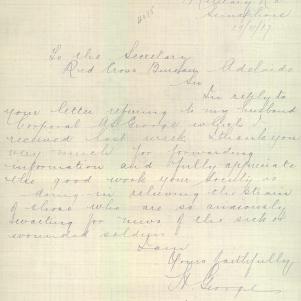 Military Rd
Semaphore
To the Secretary
Red Cross Bureau, Adelaide
Sir
In reply to
your letter refering to my husband
Corporal George which I
received last week I thank you
very much for forwarding
information and fully appreciate
the good work your Society is
doing in relieving the strain
of those who are so anxiously
waiting for news of the sick or
wounded soldiers
I am
Yours faithfully
George